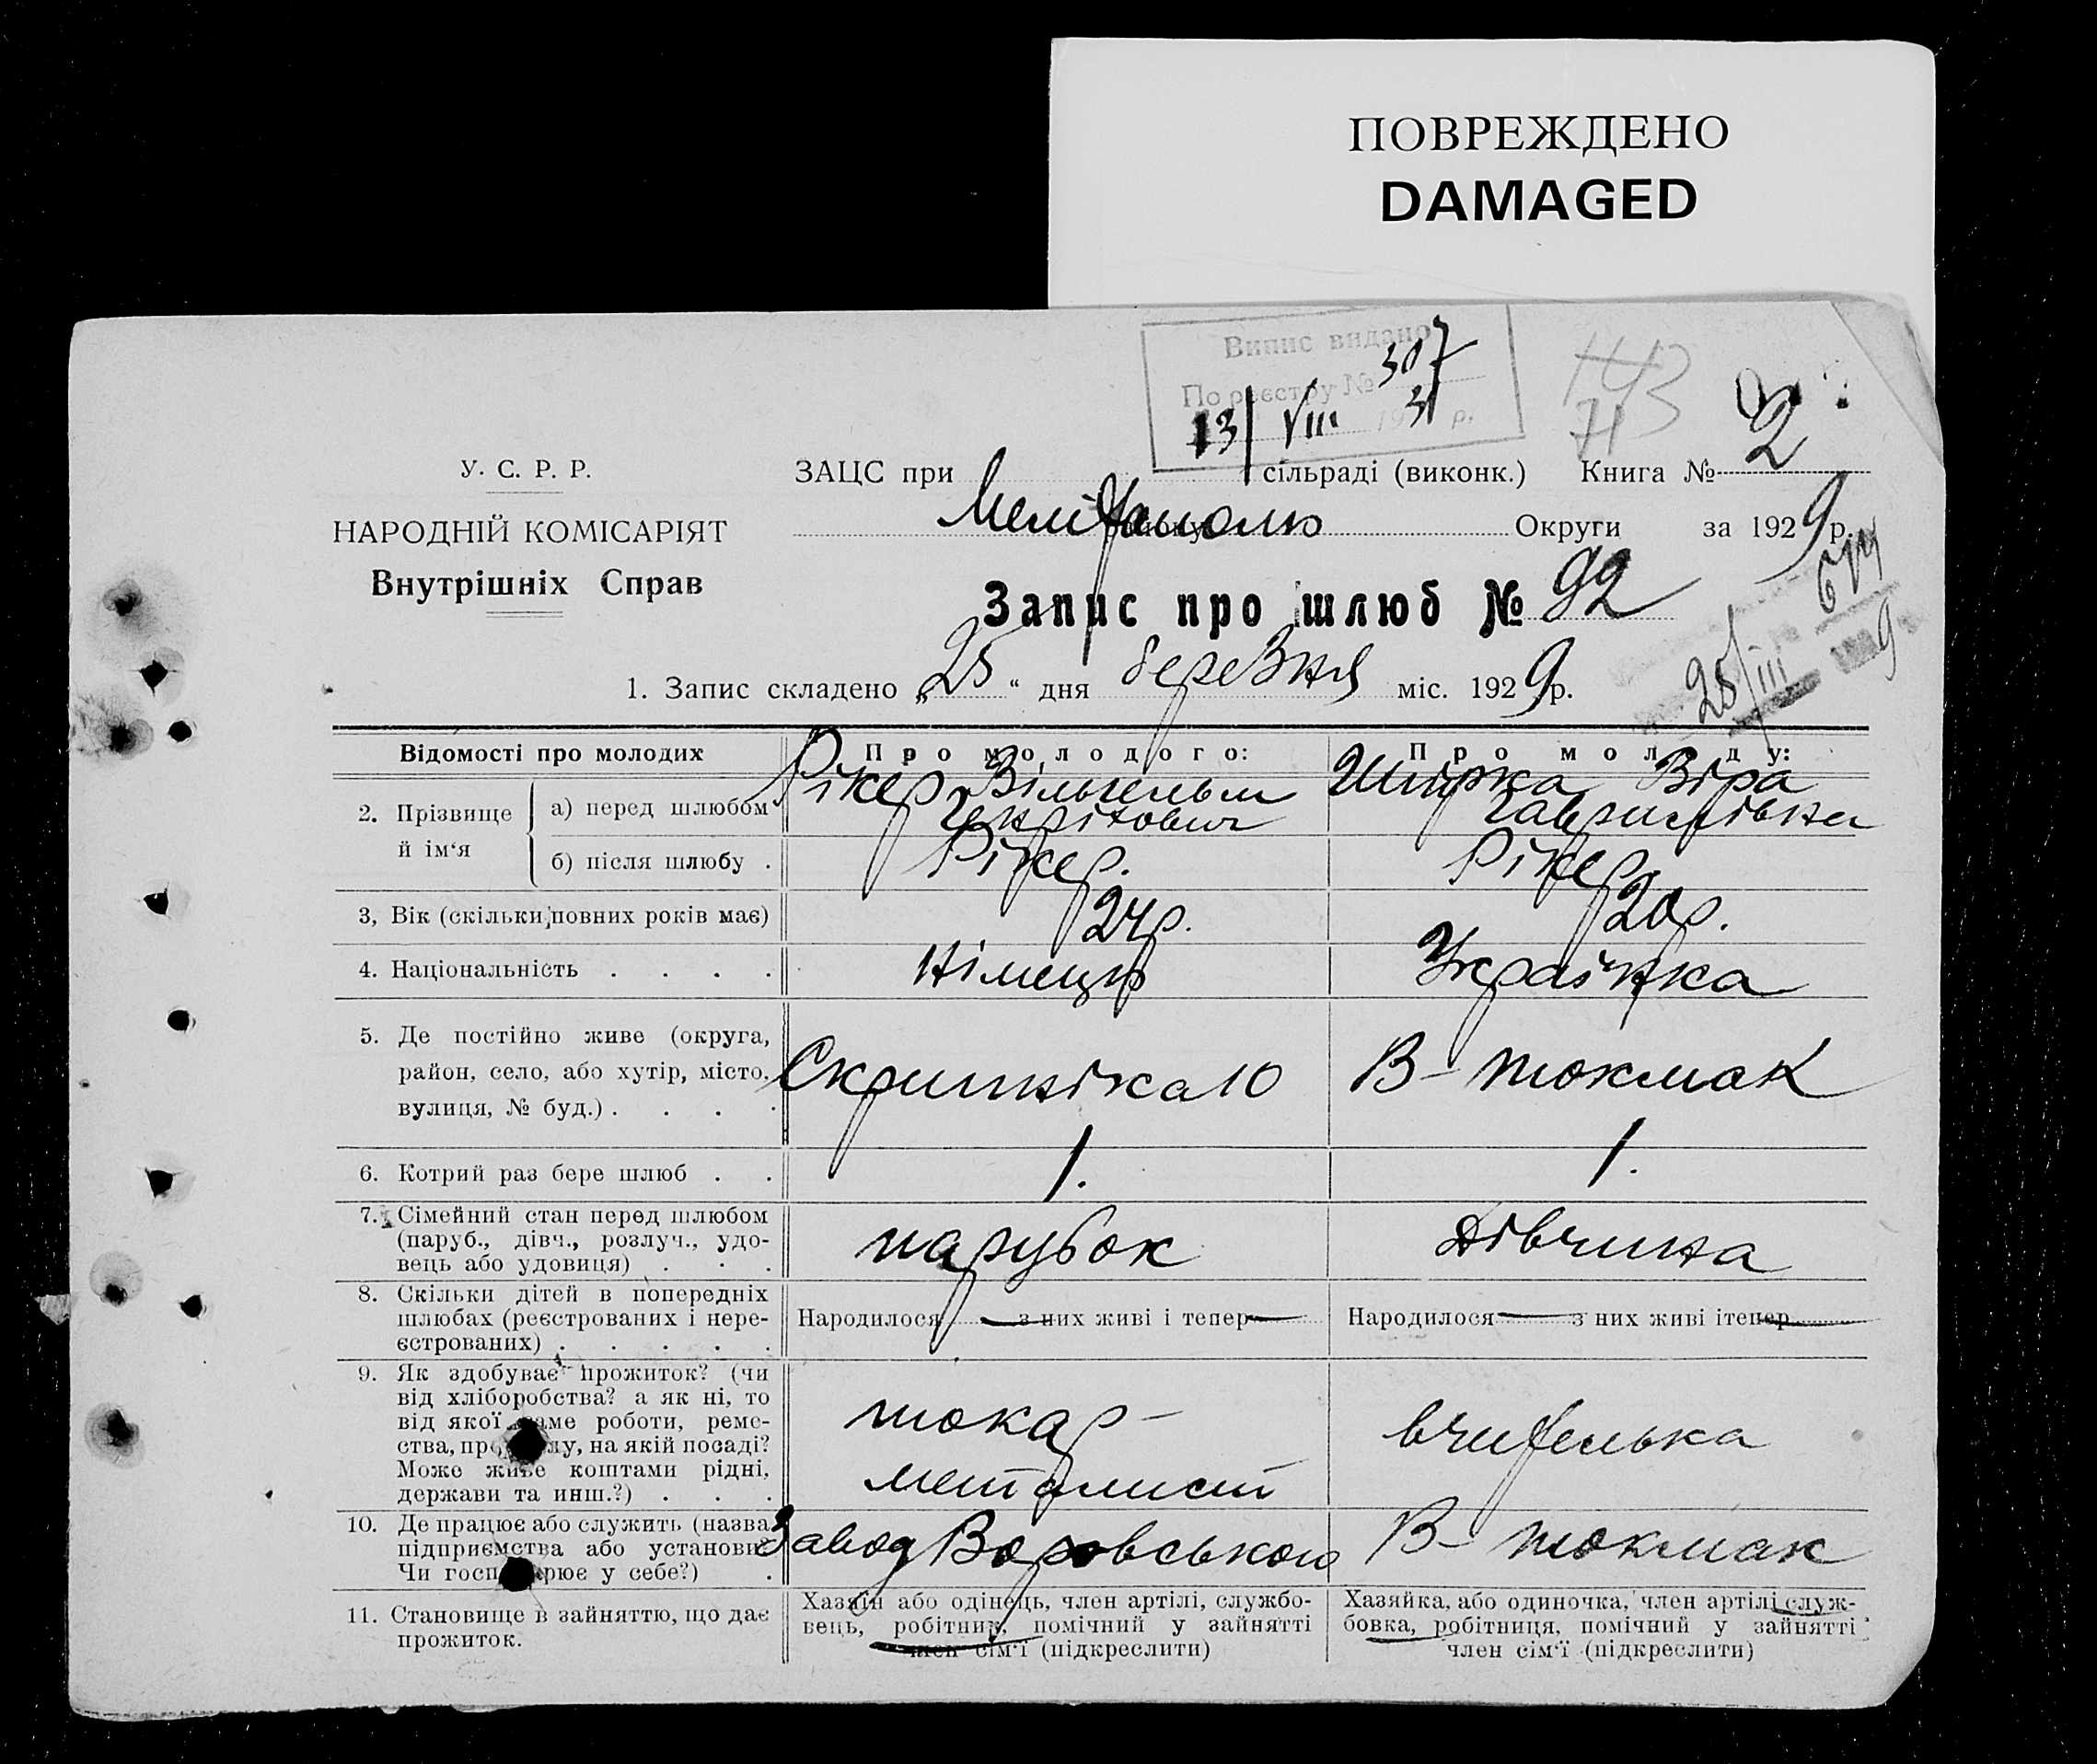 ПОВРЕЖДЕНО
DAMAGED
Випис видано
По реєстру № 307
13/VIII 1931 р.
143
71
У. С. Р. Р.
НАРОДНІЙ КОМІСАРІЯТ
Внутрішніх Справ
ЗАЦС при сільраді (виконк.) Книга № 2
Мелітополю Округи за 1929 р.
Запис про шлюб № 92
1. Запис складено „25“ дня березня міс. 1929 р.
25/III 9
Відомості про молодих Про молодого: Про молоду:
2. Прізвище й ім‘я
а) перед шлюбом Рікер Вільгельм Генріхович Ширка Віра Гаврилівна
б) після шлюбу . Рікер. Рікер.
3, Вік (скільки повних років має) 24 р. 20 р.
4. Національність . . . . Німець Українка
5. Де постійно живе (округа,
район, село, або хутір, місто,
вулиця, № буд.) . . . . Скрипніка 10 В-Токмак
6. Котрий раз бере шлюб . . 1. 1.
7. Сімейний стан перед шлюбом
(паруб., дівч., розлуч., удо-
вець або удовиця) . . . парубок дівчина
8. Скільки дітей в попередніх
шлюбах (реєстрованих і нере-
єстрованих) . . . . . Народилося — з них живі і тепер — Народилося — з них живі ітепер —
9. Як здобуває прожиток? (чи
від хліборобства? а як ні, то
від якої саме роботи, реме-
ства, на якій посаді?
Може живе коштами рідні,
держави та инш.?) . . .
токар-
металист
вчителька
10. Де працює або служить (назва
підприємства або установи?
Чи госп рює у себе?) . Завод Воровського В-Токмак
11. Становище в зайняттю, що дає
прожиток.
Хазяїн або одінець, член артілі, службо-
вець, робітник, помічний у зайнятті
член сім‘ї (підкреслити)
Хазяйка, або одиночка, член артілі служ-
бовка, робітниця, помічний у зайнятті
член сім‘ї (підкреслити)